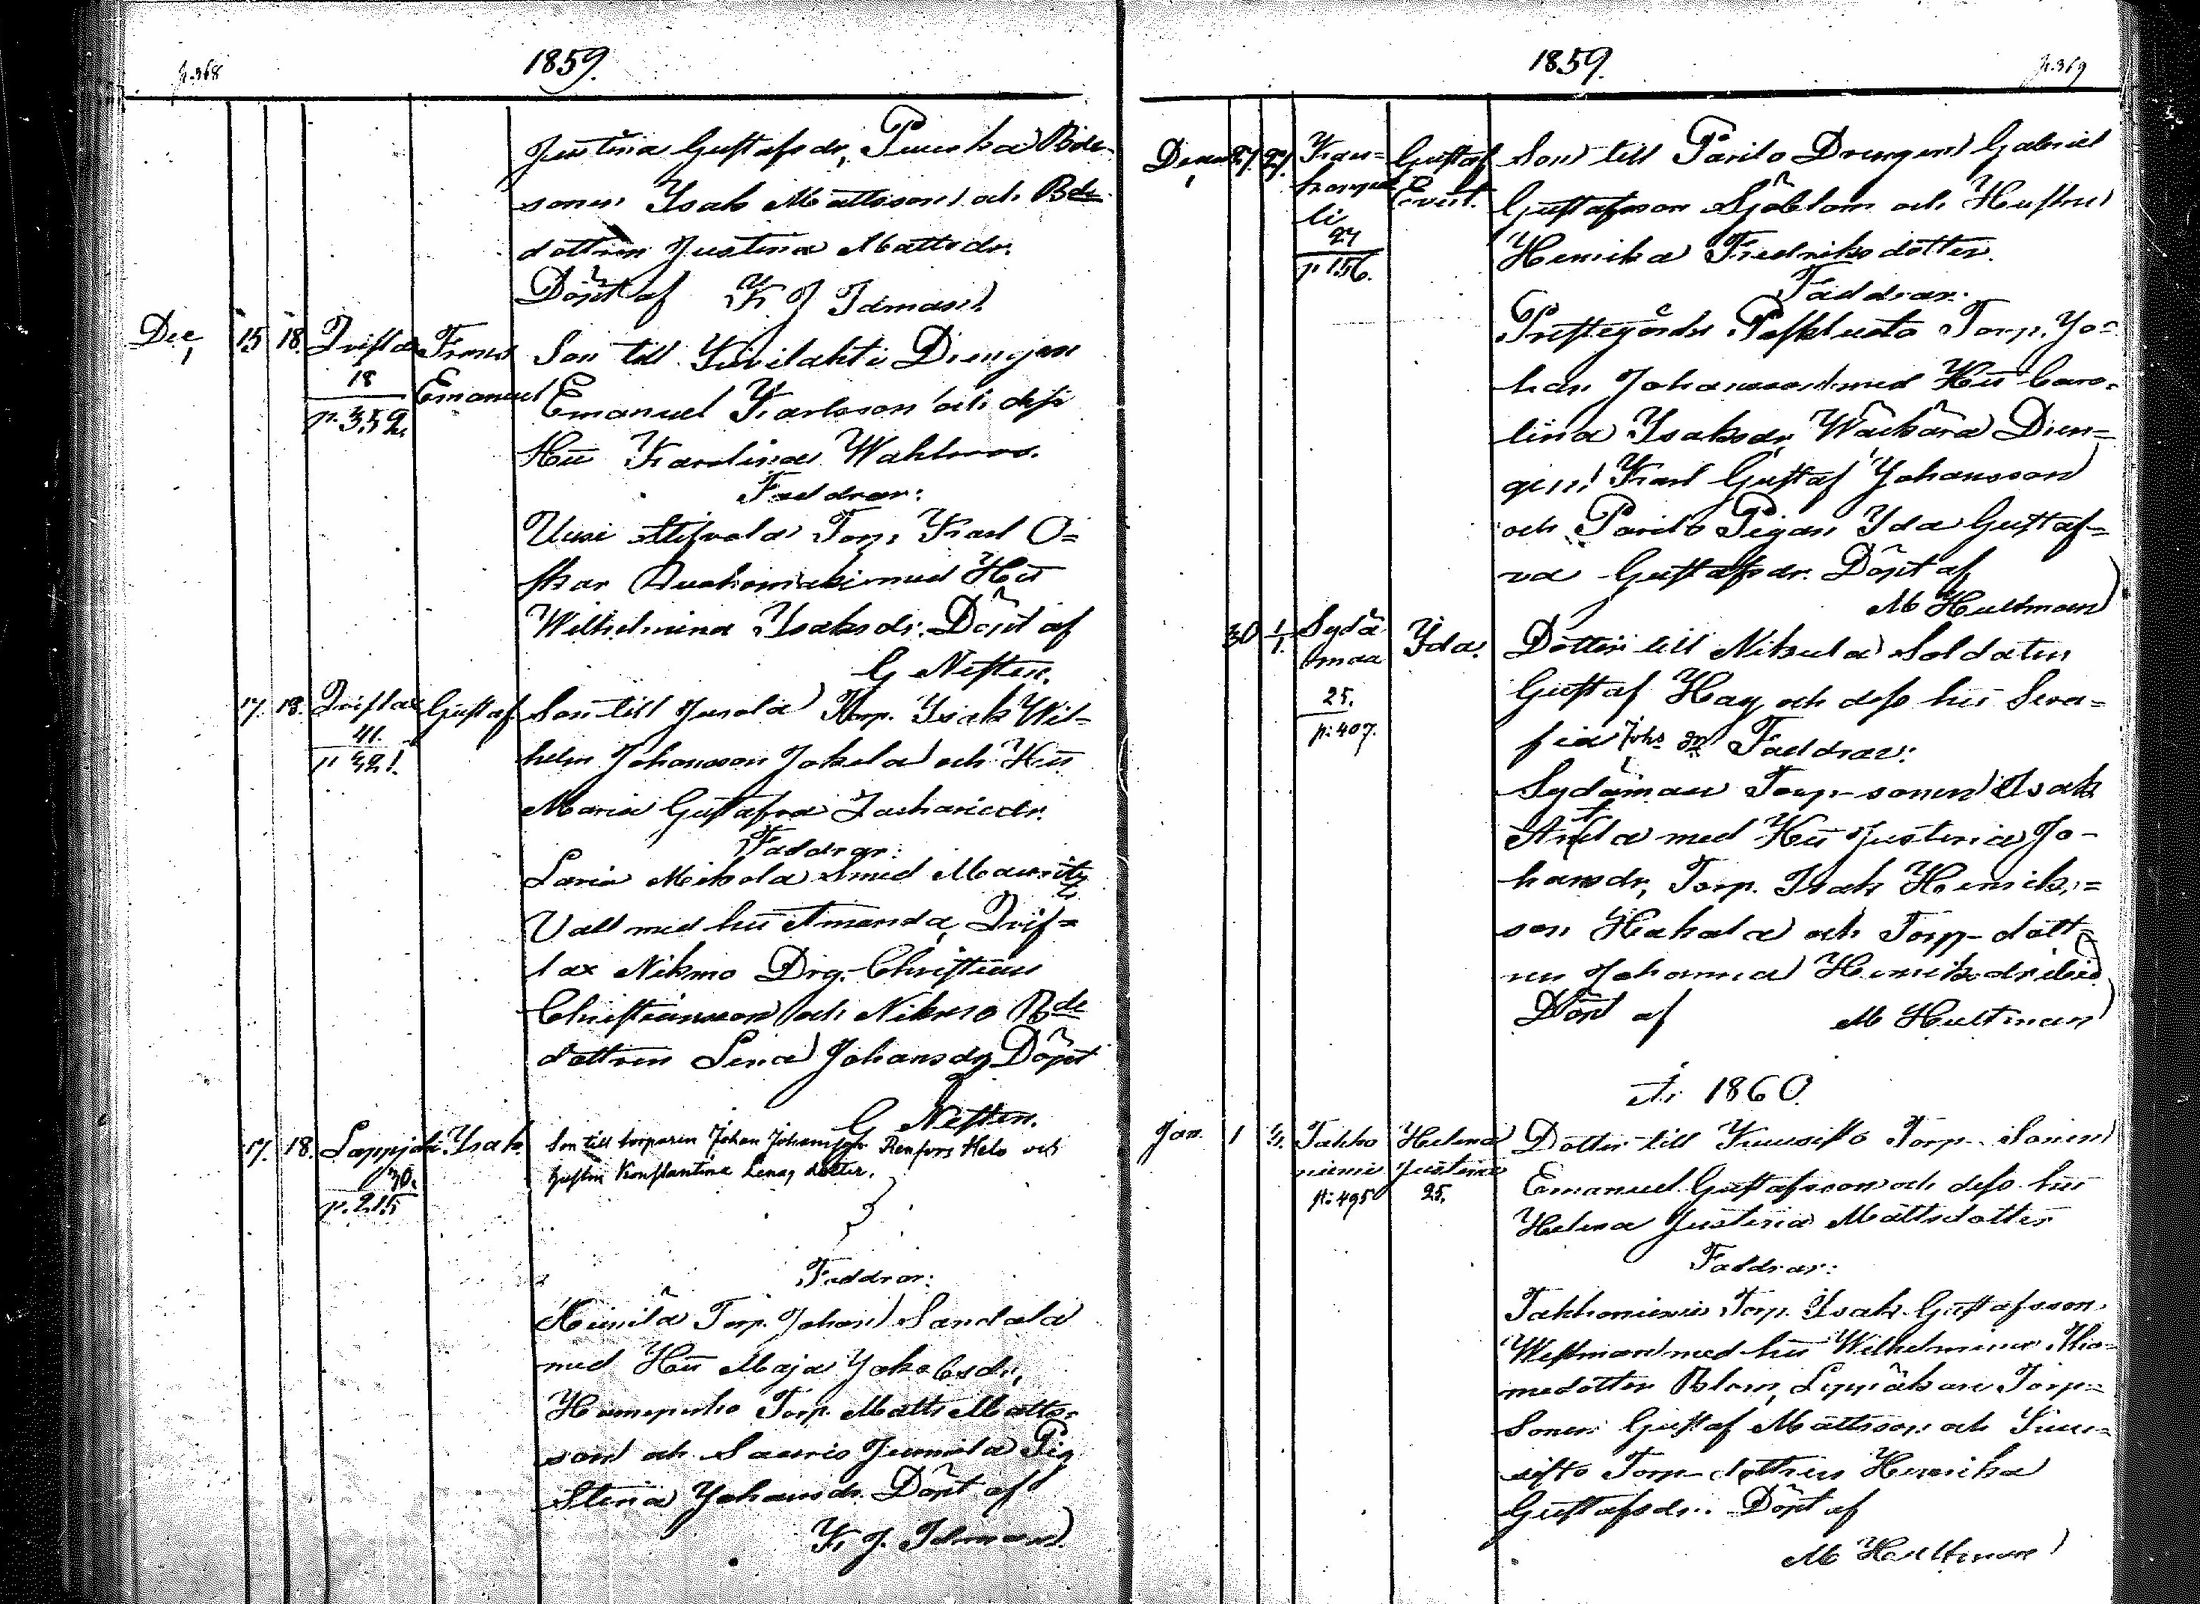 p. 368
1859.
Justina Gustafsdr, Puuska Bde-
sonen Isak Mattsson och Bde-
dottren Justina Mattsdr.
Döpt af K J Idman.
Dec, 15 18. Qviflax Frans Son till Kivilahti Drengen
18 Emanuel Emanuel Karlsson och dess
p. 352. Hu Karolina Wahlroos.
Faddrar:
Uusi Torp. Karl O=
skar med Hu
Wilhelmina Isaksdr. Döpt af
G Neften.
17. 18. Qviflax Gustaf. Son till Jusola Torp. Isak Wil=
41. helm Johansson Jokela och Hu
p 321. Maria Gustafva Zachariedr.
Faddrar:
Laria Mikola smed Mauritz
Vall med hu Amanda, Qvif=
lax Nikmo Drg. Christian
Christiansson och Nikmo Bde
dottren Lena Johansdr, Döpt
G Neften.
17. 18. Lappjoki Isak. Son till torparen Johan Johansson Renfors Helo och
30. hustru Konstantina Lena, dotter.
p. 215
Faddrar:
Heinilä Torp. Johan Sandala
med Hu Maja Jakobsdr,
Torp. Matts Matts-
son och Saaris Junnila Pig
Stina Johansdr. Döpt af
K. J. Idman.
p. 369
1859.
Decem 27. 27. Gustaf Son till Parilo Drengen Gabriel
Evert. Gustafsson Sjöblom och Hustru
li Henrika Fredriksdotter.
27 Faddrar:
p 156. Prestegårds Torp. Jo=
han Johansson med Hu Caro-
lina Isaksdr, Wäkärä Dren=
gen Karl Gustaf Johansson
och Parilo Pigan Ida Gustaf=
va Gustafsdr. Döpt af
M Hultman
30 1/1. Sydä Ida. Dotter till Nikula Soldaten
maa Gustaf Hag och dess hu Sera=
25. fia Johs dr Faddrar:
p. 407. Sydänmaa Torp-sonen Isak
Anttila med Hu Justina Jo-
hansdr, Torp. Isak Henriks=
son Hakala och Torp-dott=
ren Johanna Henriksdr
Döpt af M Hultman
År 1860.
Jan. 1 Takko Helena Dotter till Kuusisto Torp. Sonen
niemi Justina Emanuel Gustafsson och dess hu
p. 495 25. Helena Justina Mattsdotter
Faddrar:
Takkoniemi Torp. Isak Gustafsson
Westman med hu Wilhelmina Tho-
medotter Blom, Torp=
Sonen Gustaf Mattsson och Kuu=
sisto Torp-dottren Henrika
Gustafsdr. Döpt af
M Hultman